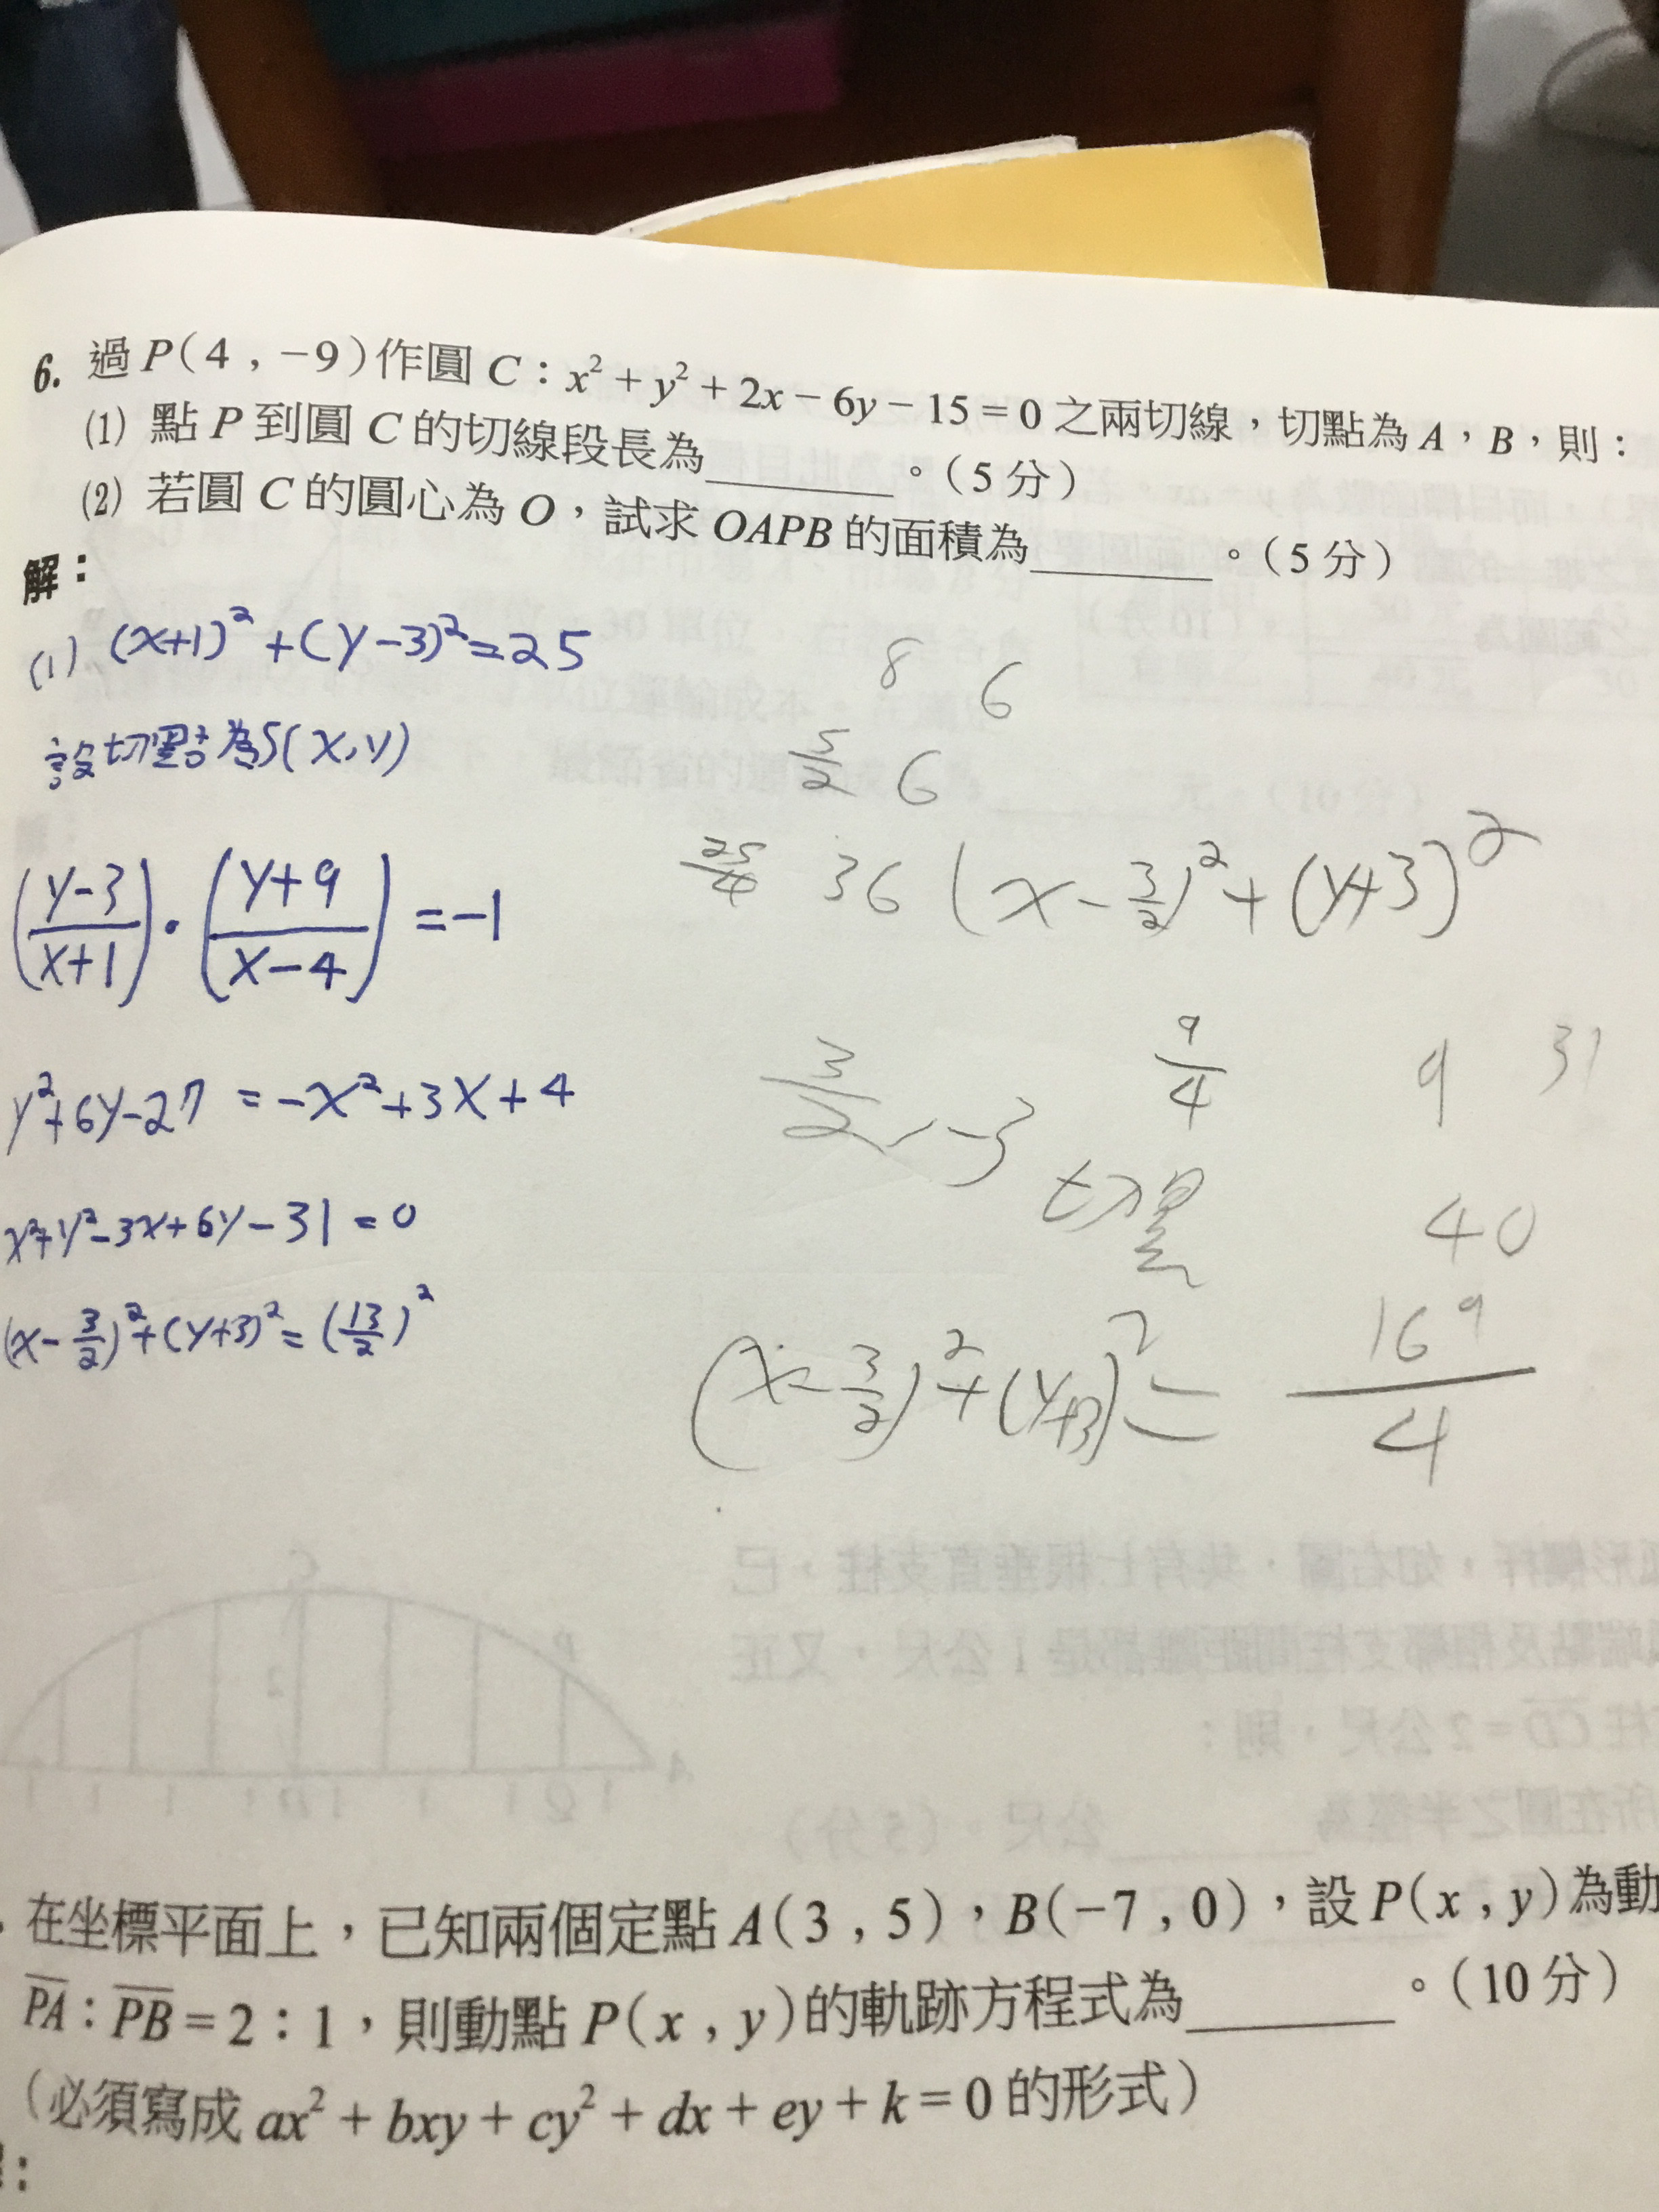 6. 過 P(4 , −9)作圓 C：x² + y² + 2x − 6y − 15 = 0 之兩切線，切點為 A，B，則：
(1) 點 P 到圓 C 的切線段長為______。(5 分)
(2) 若圓 C 的圓心為 O，試求 OAPB 的面積為______。(5 分)
解：
(1) (x+1)² + (y−3)² = 25
8 6
設切點為S(x,y)
5/2 6
25/4 36 (x − 3/2)² + (y+3)²
((y−3)/(x+1)) · ((y+9)/(x−4)) = −1
3/2, −3
9/4 9 31
y²+6y−27 = −x²+3x+4
切點
40
x²+y²−3x+6y−31 = 0
(x − 3/2)² + (y+3)² = (13/2)²
(x − 3/2)² + (y+3)² = 169/4
在坐標平面上，已知兩個定點 A(3 , 5)，B(−7 , 0)，設 P(x , y)為動
PA : PB = 2 : 1，則動點 P(x , y)的軌跡方程式為______。(10 分)
(必須寫成 ax² + bxy + cy² + dx + ey + k = 0 的形式)